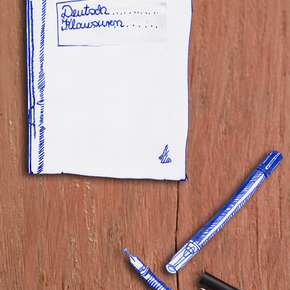 Deutsch.........
Klausuren......